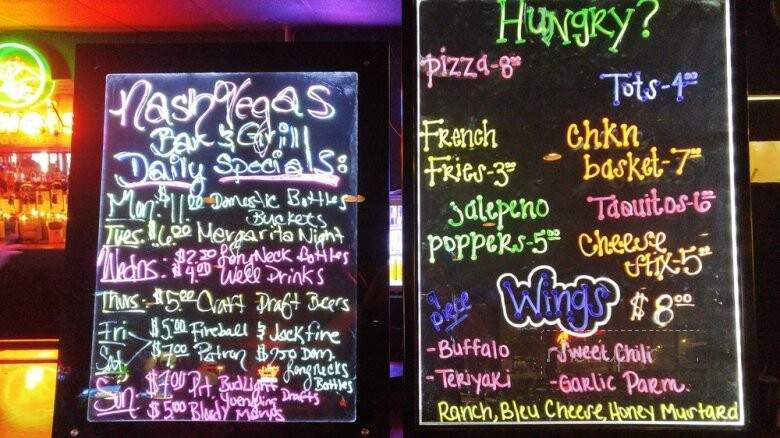 NashVegas
Bar & Grill
Daily Specials:
Mon: $11.00 Domestic Bottles
Buckets
Tues: $6.00 Mergarita Night
Wednes: $2.50 LongNeck Bottles
$4.00 Well Drinks
Thurs: $5.00 Craft Draft Beers
Fri- $5.00 Fireball & Jackfire
Sat $7.00 Patron $2.50 Dom.
Longnecks
Bottles
Sun: $7.00 Pit. Budlight
Yuengling Drafts
$5.00 Bloody Marys
Hungry?
pizza-8.00
Tots-4.00
French
Fries-3.00
chkn
basket-7.00
jalepeno
poppers-5.00
Taquitos-6.00
Cheese
stix-5.00
9 piece Wings $8.00
-Buffalo
-Sweet Chili
-Teriyaki
-Garlic Parm.
Ranch, Bleu Cheese, Honey Mustard